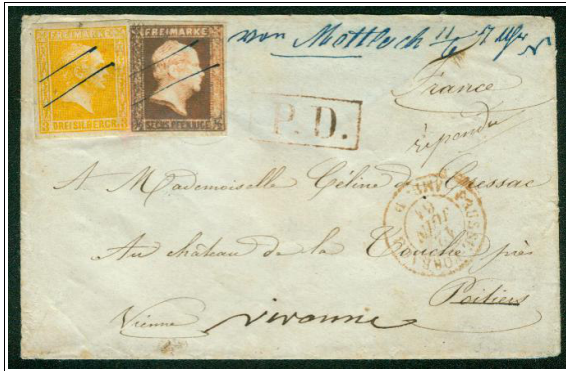 FREIMARKE
DREI SILBERGR.
FREIMARKE
SECHS PFENNIGE 1/2
von Mettlach 11/6 7 Uhr
France
P.D.
répondu
A Mademoiselle Céline de Cressac
Au château de la Touche près
Poitiers
Vienne vivonne
12 JUIN